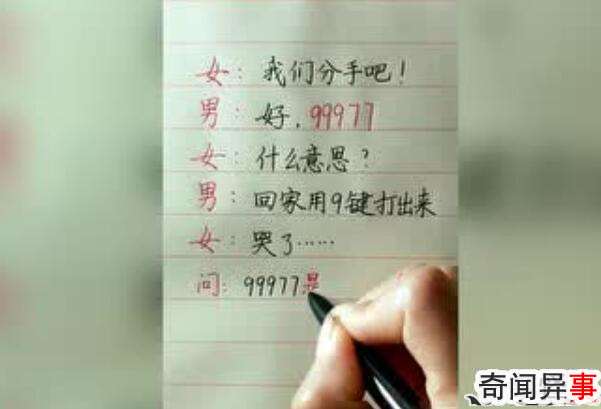 女：我们分手吧！
男：好，99977
女：什么意思？
男：回家用9键打出来
女：哭了……
问：99977是
奇闻异事